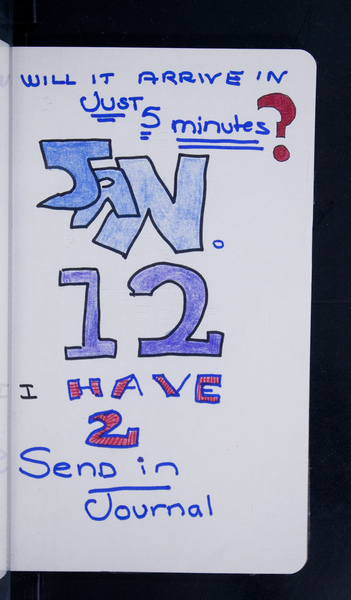 WILL IT ARRIVE IN
JUST 5 minutes?
JAN.
12
I HAVE
2
Send in
Journal